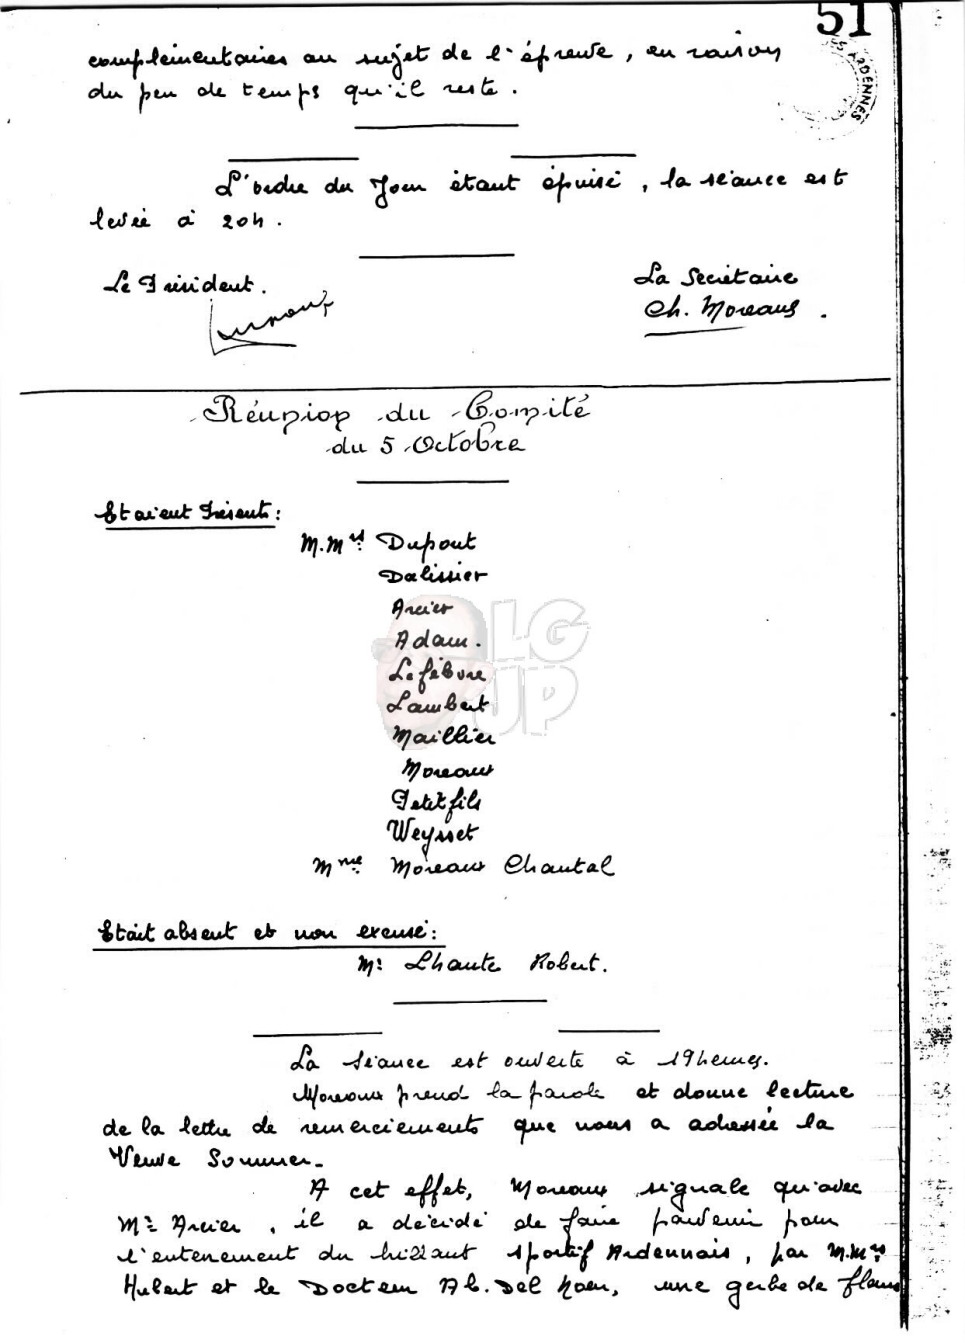 51
ARDENNES
complémentaires au sujet de l'épreuve, en raison
du peu de temps qu'il reste.
L'ordre du Jour étant épuisé, la séance est
levée à 20h.
Le Président.
La Secrétaire
Ch. Moreaux.
Réunion du Comité
du 5 Octobre
Etaient Présents:
M.Mrs Dupont
Dalissier
Arcier
Adam.
Lefébvre
Lambert
Maillier
Moreaux
Petitfils
Weysset
Mme Moreaux Chantal
LG
JP
Etait absent et non excusé:
Mr Lhante Robert.
La séance est ouverte à 19heures.
Moreaux prend la parole et donne lecture
de la lettre de remerciements que nous a adressée la
Veuve Sommer.
A cet effet, Moreaux signale qu'avec
Mr Arcier, il a décidé de faire parvenir pour
l'enterrement du brillant sportif Ardennais, par M.Mrs
Hubert et le Docteur Ab. Del, une gerbe de fleurs